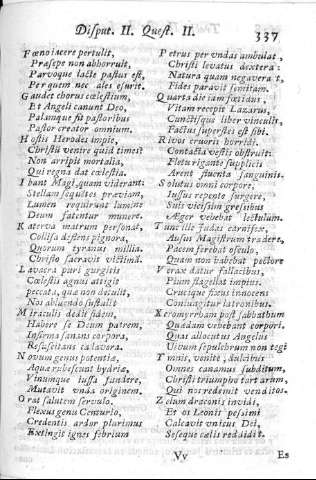 Disput. II. Quest. II. 337
Fœno iacere pertulit,
Præsepe non abhorruit,
Parvoque lacte pastus est,
Per quem nec ales esurit.
Gaudet chorus cœlestium,
Et Angeli canunt Deo,
Palamque fit pastoribus
Pastor creator omnium.
Hostis Herodes impie,
Christū venire quid times?
Non arripit mortalia,
Qui regna dat cœlestia.
Ibant Magi, quam viderant
Stellam sequētes præviam,
Lumen requirunt lumine
Deum fatentur munere.
Katerva matrum personat,
Collisa deflens pignora,
Quorum tyrannus millia
Christo sacravit victimā.
Lavacra puri gurgitis
Cœlestis agnus attigit
peccata, quæ non detulit,
Nos abluendo sustulit
Miraculis dedit fidem,
Habere se Deum patrem,
Infirma sanans corpora,
Resuscitans cadavera.
Novum genus potentiæ,
Aquæ rubescunt hydriæ,
Vinumque iussa fundere,
Mutavit unda originem,
Orat salutem servulo,
Flexus genu Centurio,
Credentis ardor plurimus
Extingit ignes febrium
Petrus per undas ambulat,
Christi levatus dextera:
Natura quam negaverat,
Fides paravit semitam.
Quarta die iam fœtidus,
Vitam recepit Lazarus,
Cunctisque liber vinculis,
Factus superstes est sibi.
Rivos cruoris horridi,
Contacta vestis obstruit:
Fletu rigante supplicis
Arent fluenta sanguinis.
Solutus omni corpore,
Iussus repente surgere,
Suis vicissim gressibus
Æger vehebat lectulum.
Tunc ille Iudas carnifex,
Ausus Magistrum tradere,
Pacem ferebat osculo,
Quam non habebat pectore
Verax datur fallacibus,
Pium flagellat impius,
Crucique fixus innocens
Coniungitur latronibus.
Xeromyrrham post sabbathum
Quædam vehebant corpori,
Quas allocutus Angelus
Vivum sepulchrum non tegit
Ymnis, venite, dulcibus
Omnes canamus subditum,
Christi triumpho tartarum,
Qui nos redemit venditos.
Zelum draconis invidi,
Et os Leonis pessimi
Calcavit unicus Dei,
Seseque cœlis reddidit.
Vv Es